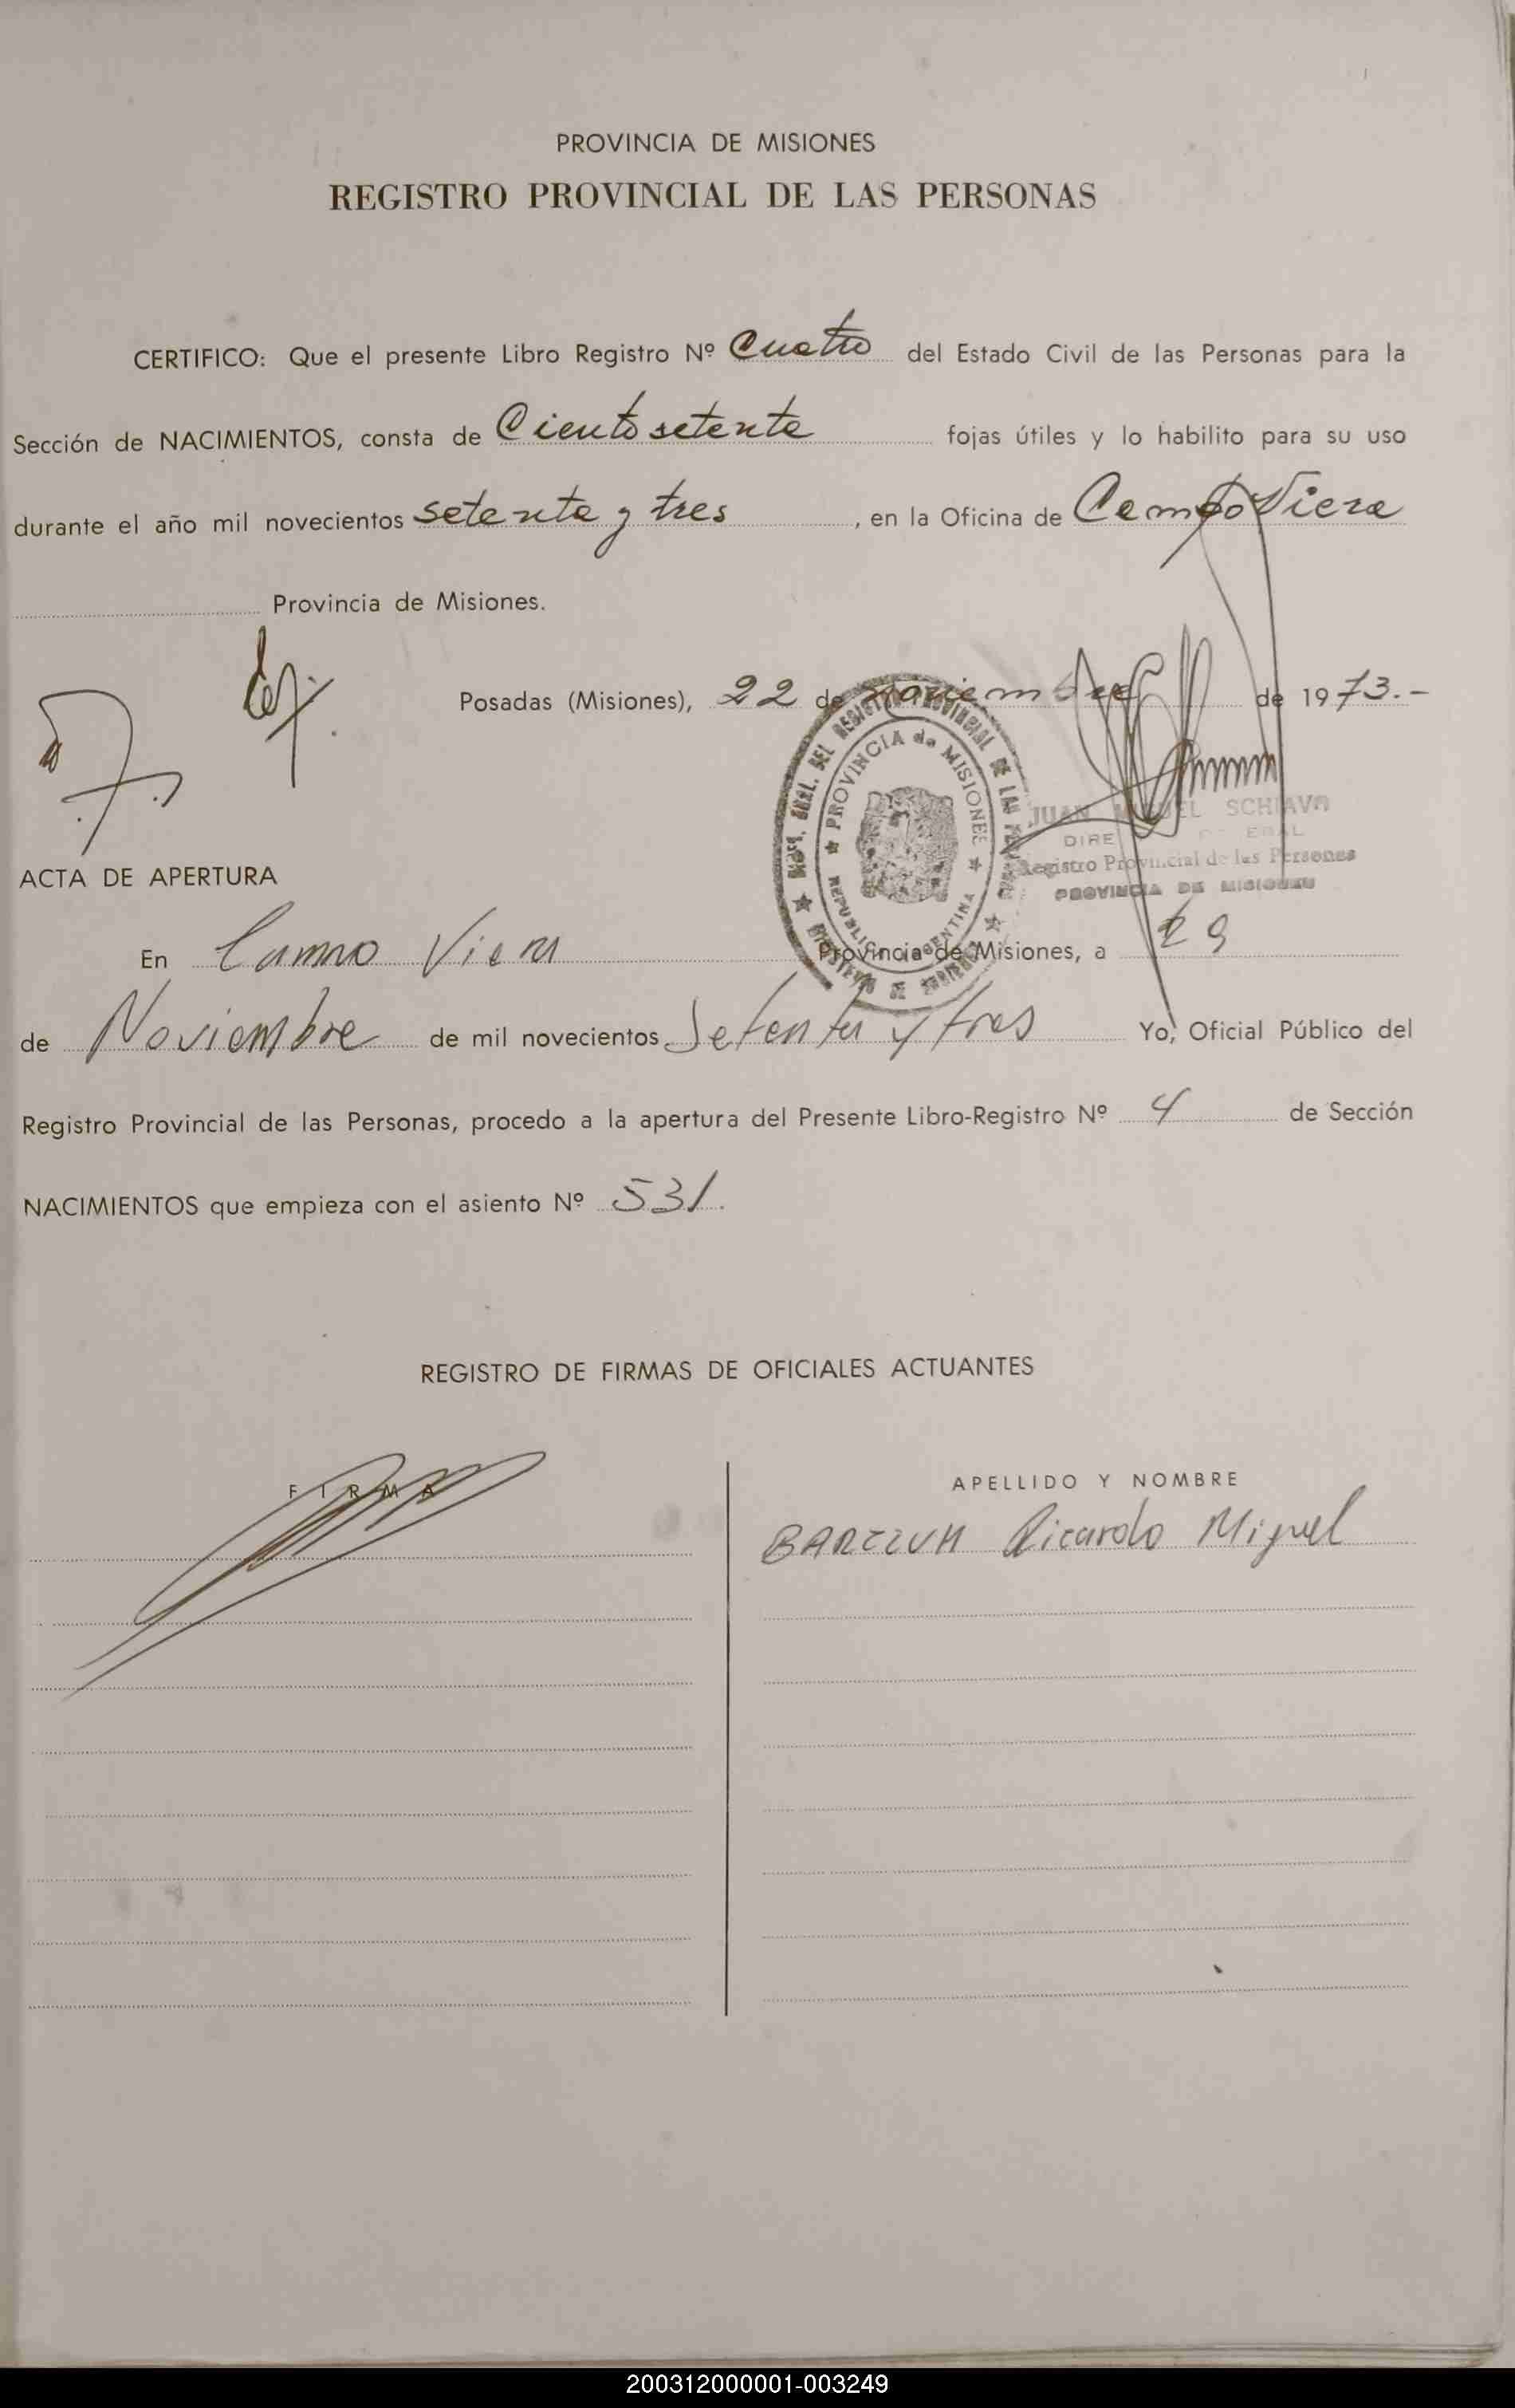 PROVINCIA DE MISIONES
REGISTRO PROVINCIAL DE LAS PERSONAS
CERTIFICO: Que el presente Libro Registro Nº Cuatro del Estado Civil de las Personas para la
Sección de NACIMIENTOS, consta de Ciento setenta fojas útiles y lo habilito para su uso
durante el año mil novecientos setenta y tres, en la Oficina de Campo Viera
Provincia de Misiones.
Posadas (Misiones), 22 de noviembre de 1973.-
PROVINCIA de MISIONES
REPUBLICA ARGENTINA
JUAN MIGUEL SCHIAVO
Registro Provincial de las Personas
PROVINCIA DE MISIONES
ACTA DE APERTURA
En Campo Viera Provincia de Misiones, a 29
de Noviembre de mil novecientos Setenta y tres Yo, Oficial Público del
Registro Provincial de las Personas, procedo a la apertura del Presente Libro-Registro Nº 4 de Sección
NACIMIENTOS que empieza con el asiento Nº 531.
REGISTRO DE FIRMAS DE OFICIALES ACTUANTES
FIRMA
APELLIDO Y NOMBRE
Ricardo Miguel
200312000001-003249